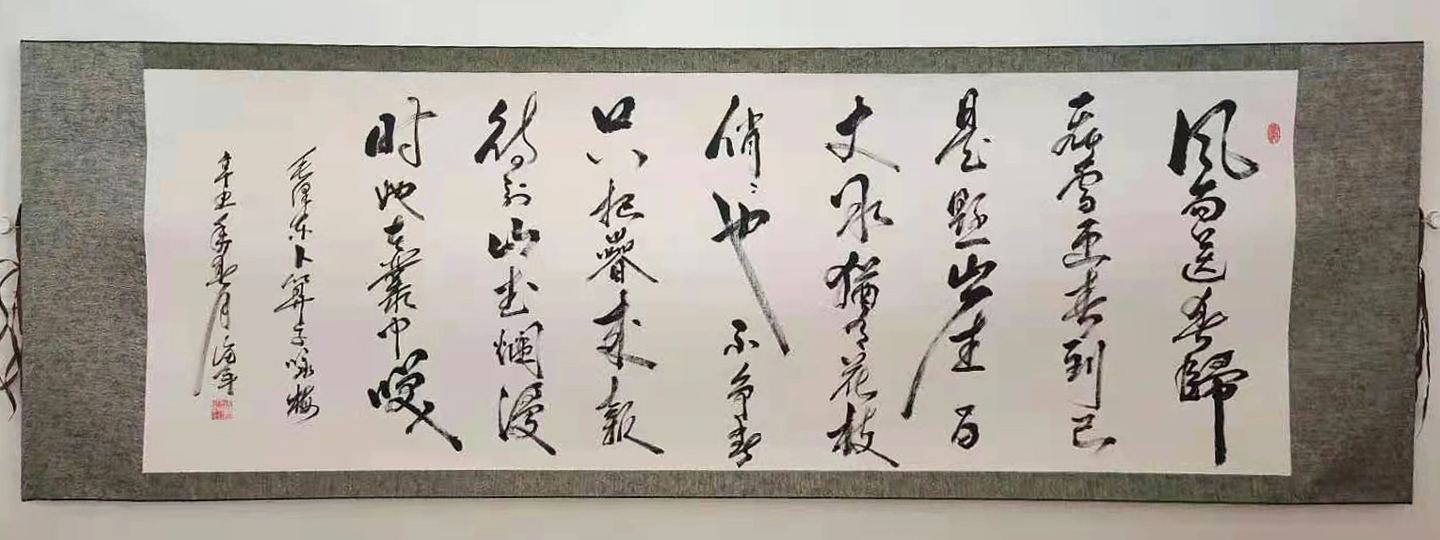 风雨送春歸
飛雪迎春到已
是懸崖百
丈冰猶有花枝
俏〻也不争春
只把春來報
待到山花爛漫
时她在叢中笑
毛泽东卜算子咏梅
辛丑年春月